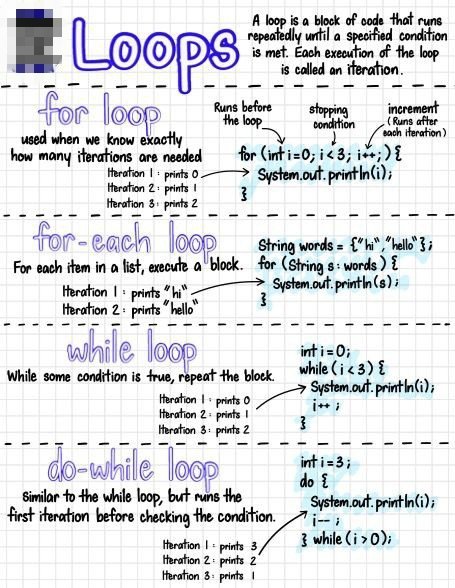 Loops
A loop is a block of code that runs
repeatedly until a specified condition
is met. Each execution of the loop
is called an iteration.
for loop
used when we know exactly
how many iterations are needed
Iteration 1 : prints 0
Iteration 2 : prints 1
Iteration 3 : prints 2
Runs before
the loop
stopping
condition
increment
(Runs after
each iteration)
for (int i=0; i<3; i++;) {
System.out.println(i);
}
for-each loop
For each item in a list, execute a block.
Iteration 1 : prints "hi"
Iteration 2 : prints "hello"
String words = {"hi","hello"};
for (String s : words) {
System.out.println(s);
}
while loop
While some condition is true, repeat the block.
Iteration 1 : prints 0
Iteration 2 : prints 1
Iteration 3 : prints 2
int i=0;
while (i<3) {
System.out.println(i);
i++ ;
}
do-while loop
Similar to the while loop, but runs the
first iteration before checking the condition.
Iteration 1 : prints 3
Iteration 2 : prints 2
Iteration 3 : prints 1
int i=3;
do {
System.out.println(i);
i-- ;
} while (i>0);